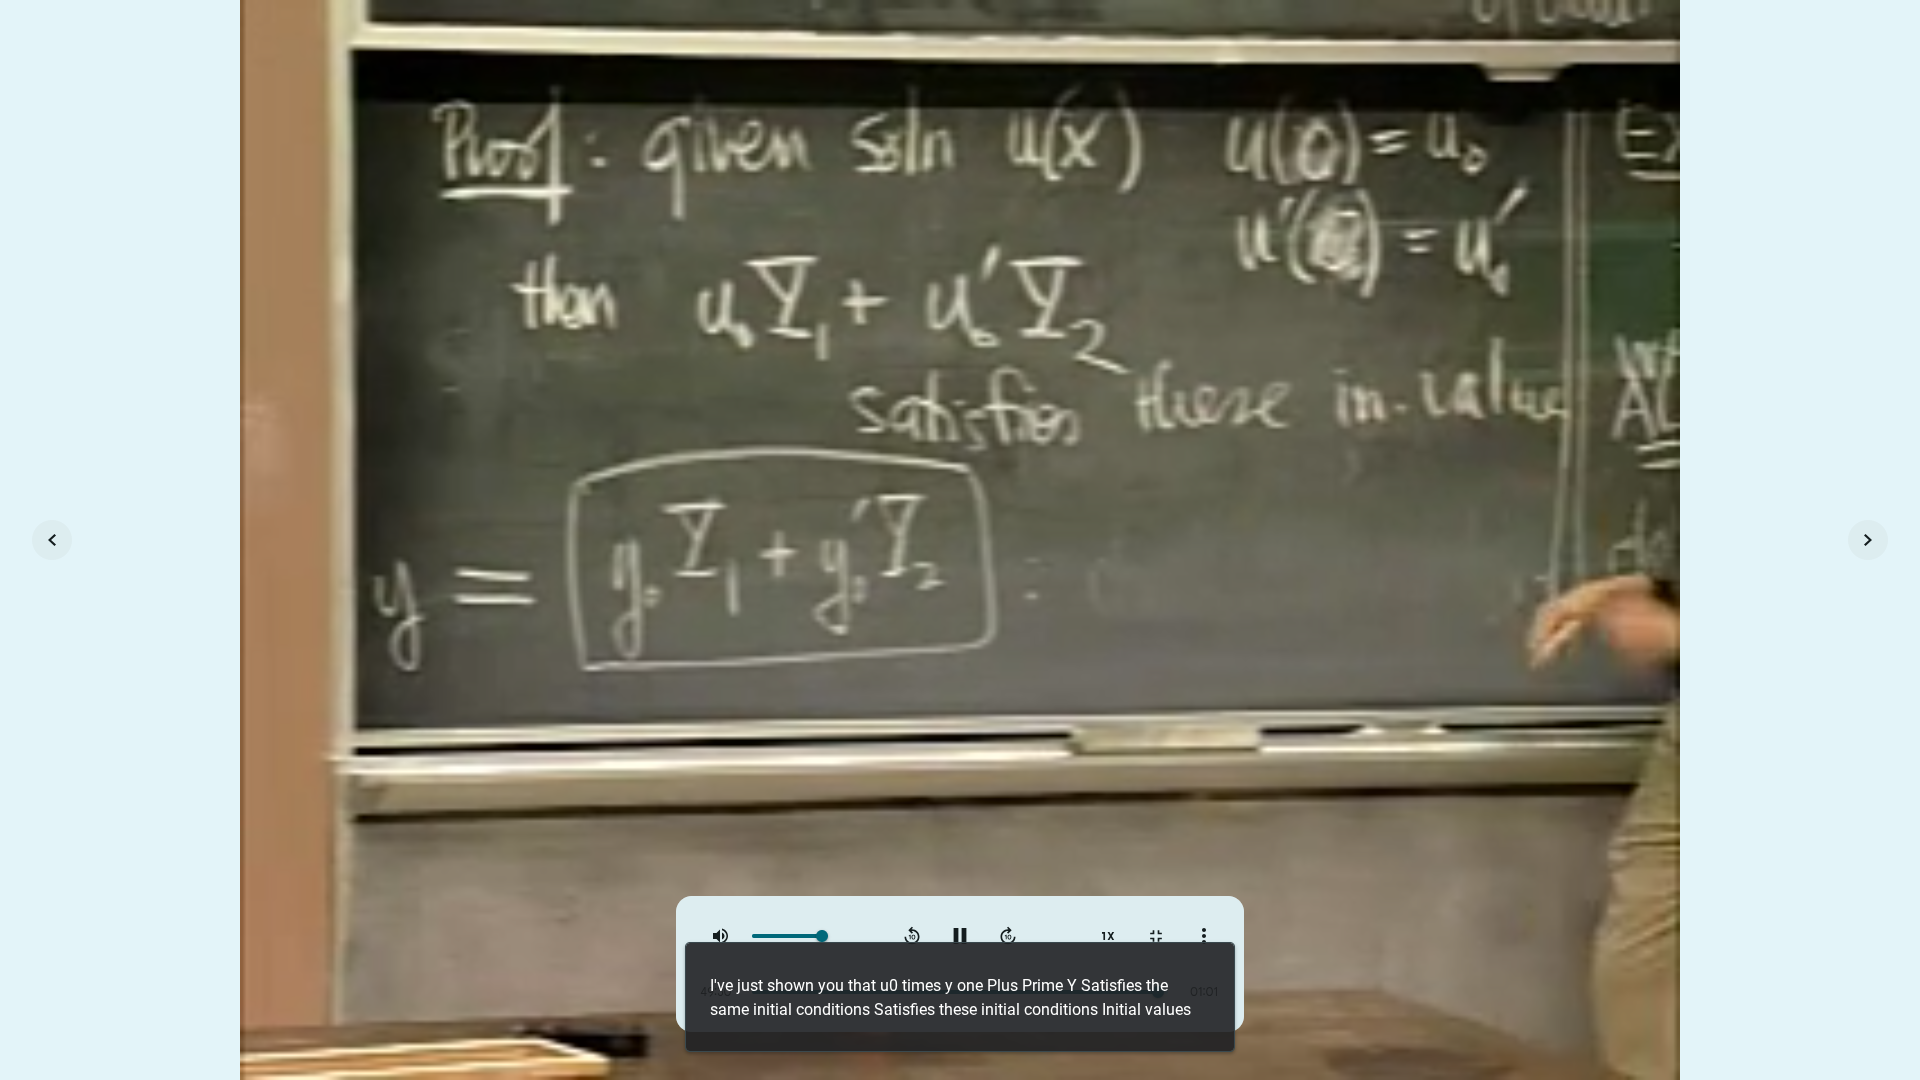 Proof: given soln u(x) u(0) = u₀
u'(0) = u₀'
then u₀Y₁ + u₀'Y₂
satisfies these in. value
y = y₀Y₁ + y₀'Y₂ :
1X
I've just shown you that u0 times y one Plus Prime Y Satisfies the
same initial conditions Satisfies these initial conditions Initial values
01:01